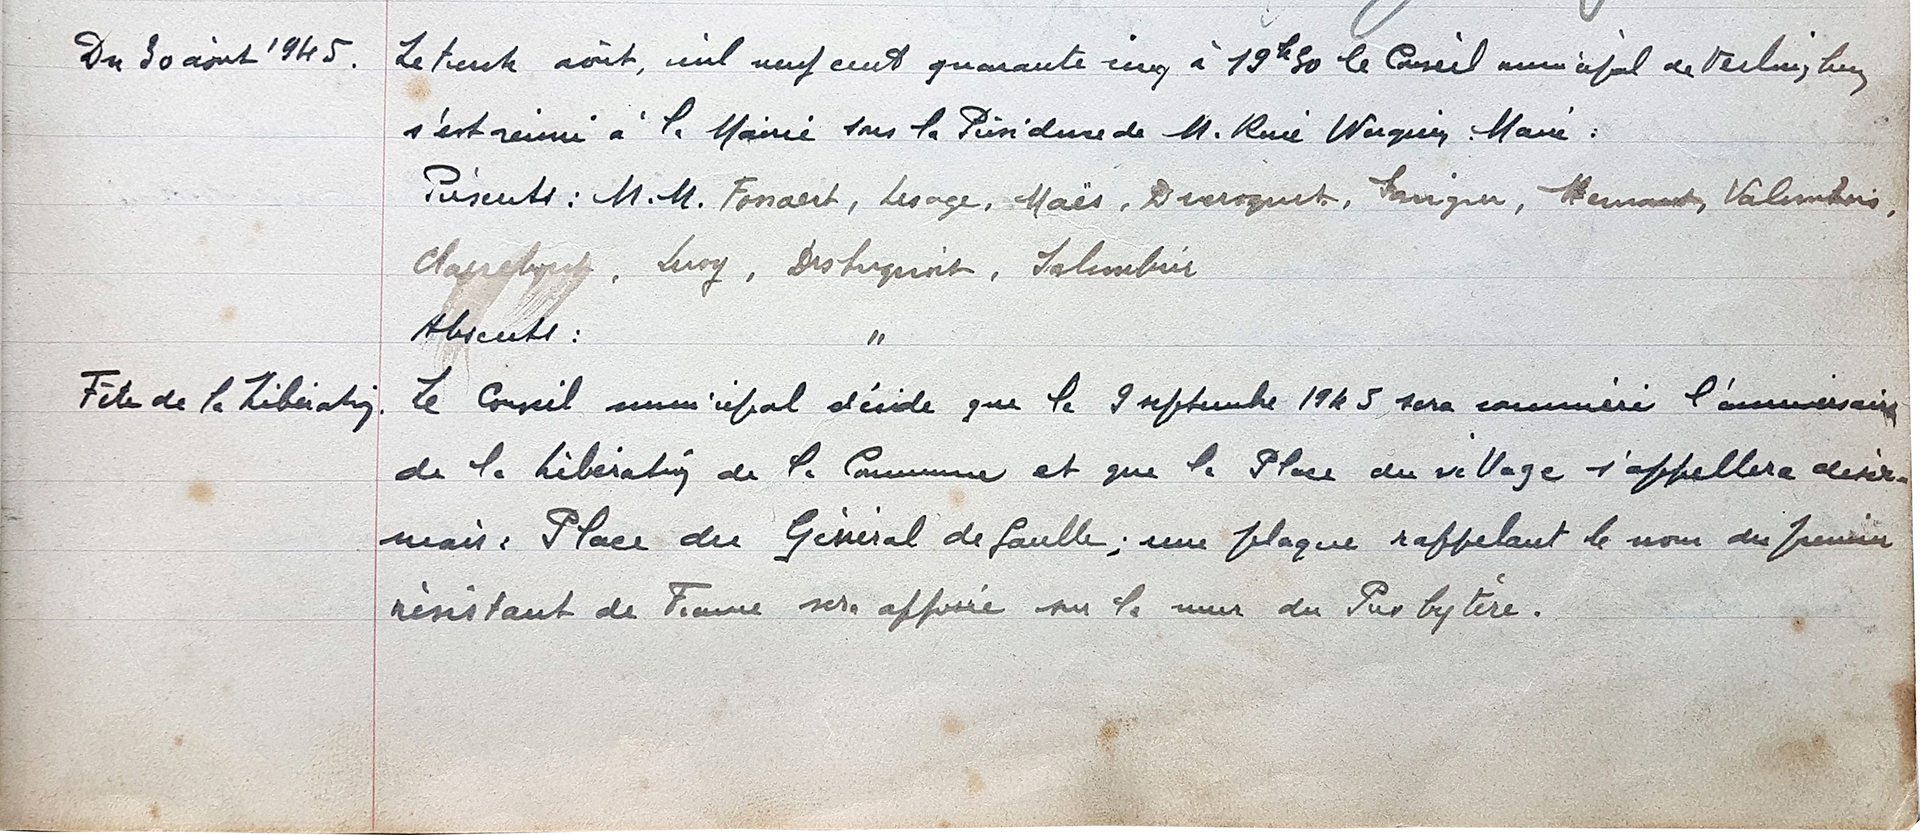 Du 30 août 1945. Le trente août, mil neuf cent quarante cinq à 19h30 le Conseil municipal de Verlinghem
s'est réuni à la Mairie sous la Présidence de M. René Werquin Maire :
Présents : M.M. Fossaert, Lesage, Maës, Ducroquet, Hennart, Valembois,
Leroy, Destuynder, Salembier
Absents : "
Fête de la Libération. Le Conseil municipal décide que le 9 septembre 1945 sera commémoré l'anniversaire
de la Libération de la Commune et que la Place du village s'appellera désor-
mais : Place du Général de Gaulle ; une plaque rappelant le nom du premier
résistant de France sera apposée sur le mur du Presbytère.